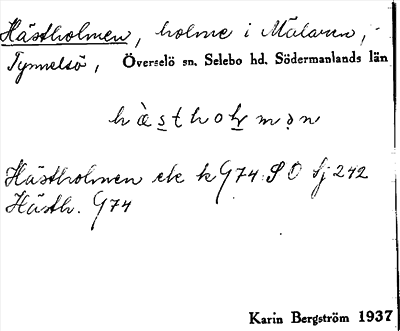 Hästholmen, holme i Mälaren,
Tynnelsö, Överselö sn. Selebo hd. Södermanlands län
hästholmen
Hästholmen ek k G74 SO Sj 242
Hästh. G74
Karin Bergström 1937